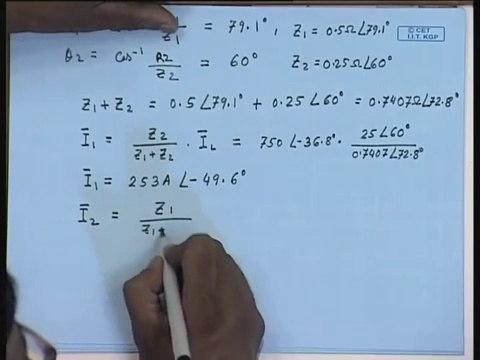 Z1 = 79.1°, Z1 = 0.5Ω∠79.1°
© CET
I.I.T. KGP
θ2 = Cos⁻¹ R2/Z2 = 60° Z2 = 0.25Ω∠60°
Z1 + Z2 = 0.5∠79.1° + 0.25∠60° = 0.7407Ω∠72.8°
Ī1 = Z2/(Z1+Z2) · ĪL = 750∠-36.8° · 25∠60°/0.7407∠72.8°
Ī1 = 253A ∠-49.6°
Ī2 = Z1/Z1+